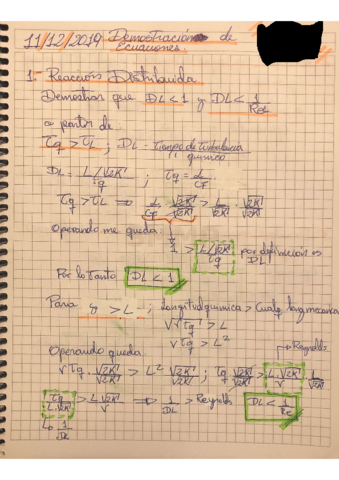 11/12/2019 Demostración de
Ecuaciones.
1.- Reacción Distribuida
Demostrar que DL < 1 y DL < 1/ReL
a partir de:
τq > τL ; DL = tiempo de turbulencia / " químico
DL = L/√2K' / τq ; τq = L/CF
τq > τL ⇒ L/CF · √2K'/√2K' > L/√2K' · √2K'/√2K'
Operando me queda:
1 > L/√2K' / τq por definición es DL
Por lo tanto DL < 1
Para > L ; Longitud química > Cualq. long mecánica
√ντq' > L
ντq > L²
→ Reynolds
Operando queda:
ντq · √2K'/√2K' > L² √2K'/√2K' ; τq √2K'/√2K' > L·√2K'/ν · L/√2K'
τq / L/√2K' > L√2K'/ν ⇒ 1/DL > Reynolds DL < 1/Re
↳ 1/DL